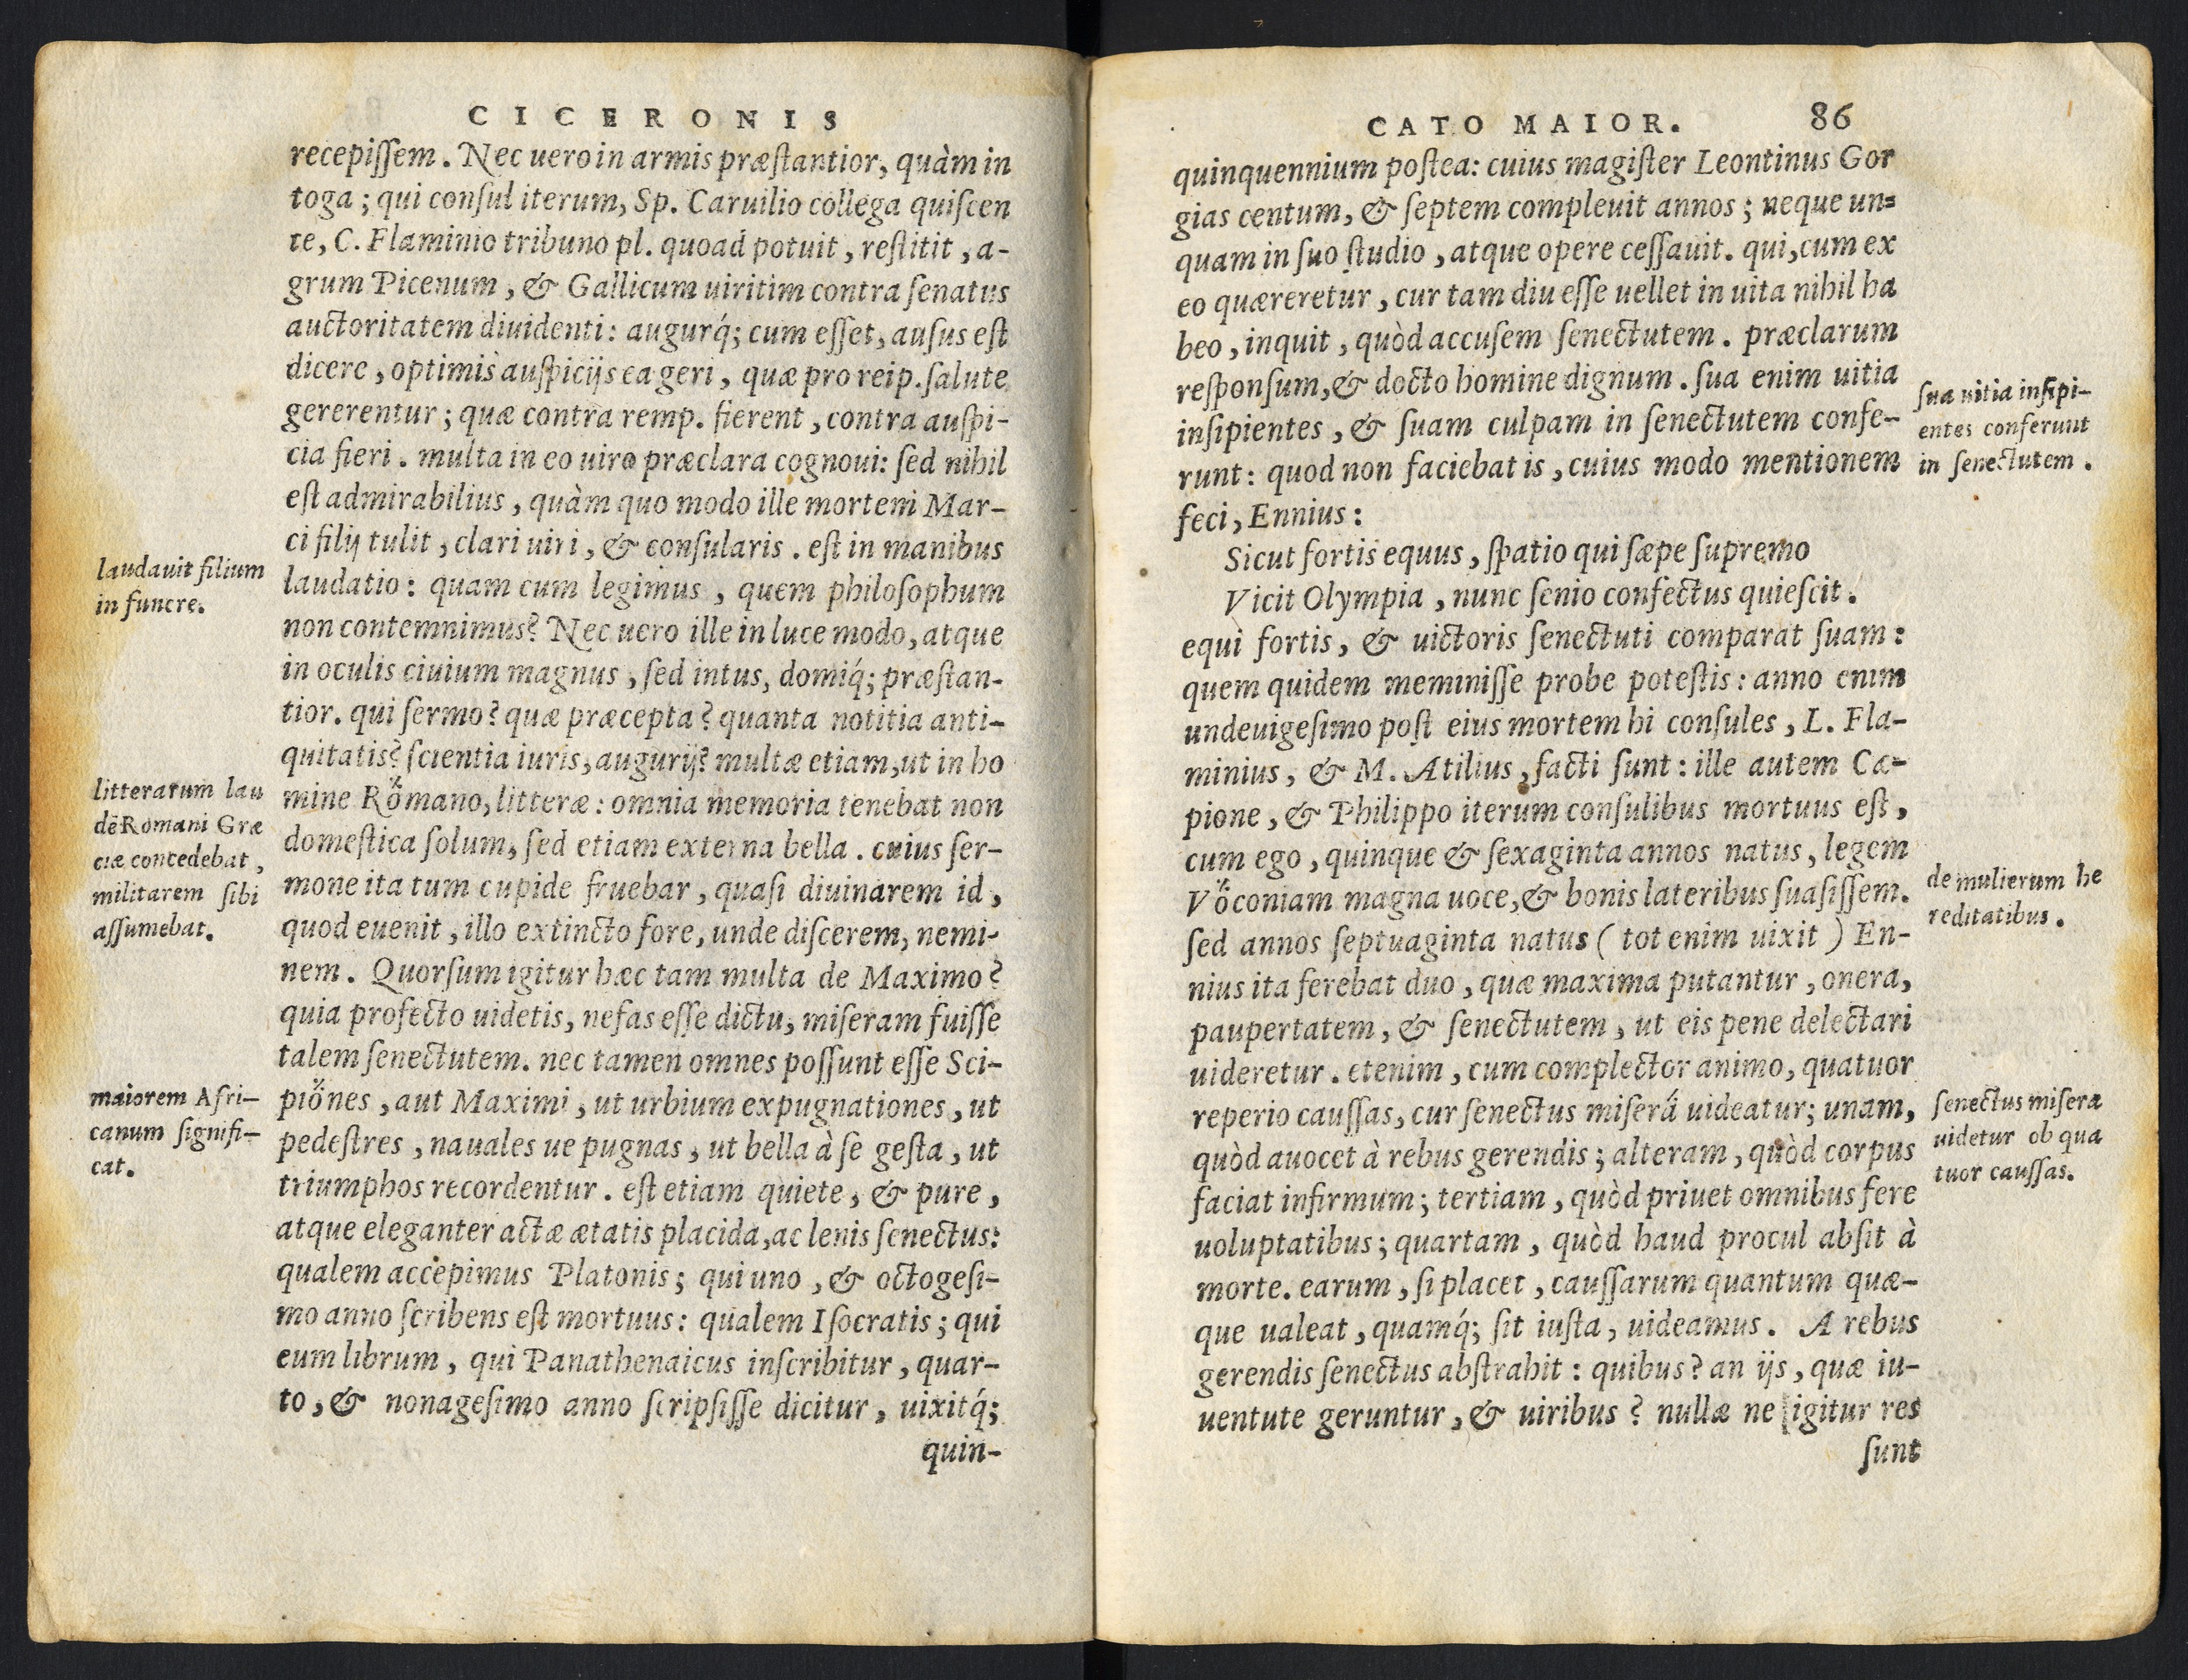 CICERONIS
recepissem. Nec uero in armis præstantior, quàm in
toga; qui consul iterum, Sp. Caruilio collega quiscen
te, C. Flaminio tribuno pl. quoad potuit, restitit, a-
grum Picenum, & Gallicum uiritim contra senatus
auctoritatem diuidenti: augurq́; cum esset, ausus est
dicere, optimis auspicijs ea geri, quæ pro reip. salute
gererentur; quæ contra remp. fierent, contra auspi-
cia fieri. multa in eo uiro præclara cognoui: sed nihil
est admirabilius, quàm quo modo ille mortem Mar-
ci filij tulit, clari uiri, & consularis. est in manibus
laudatio: quam cum legimus, quem philosophum
non contemnimus? Nec uero ille in luce modo, atque
in oculis ciuium magnus, sed intus, domiq́; præstan-
tior. qui sermo? quæ præcepta? quanta notitia anti-
quitatis? scientia iuris, augurij? multæ etiam, ut in ho
mine Romano, litteræ: omnia memoria tenebat non
domestica solum, sed etiam externa bella. cuius ser-
mone ita tum cupide fruebar, quasi diuinarem id,
quod euenit, illo extincto fore, unde discerem, nemi-
nem. Quorsum igitur hæc tam multa de Maximo?
quia profecto uidetis, nefas esse dictu, miseram fuisse
talem senectutem. nec tamen omnes possunt esse Sci-
piones, aut Maximi, ut urbium expugnationes, ut
pedestres, nauales ue pugnas, ut bella à se gesta, ut
triumphos recordentur. est etiam quiete, & pure,
atque eleganter actæ ætatis placida, ac lenis senectus:
qualem accepimus Platonis; qui uno, & octogesi-
mo anno scribens est mortuus: qualem Isocratis; qui
eum librum, qui Panathenaicus inscribitur, quar-
to, & nonagesimo anno scripsisse dicitur, uixitq́;
quin-
laudauit filium
in funere.
litterarum lau
dē Romani Græ
ciæ concedebat,
militarem sibi
assumebat.
maiorem Afri-
canum signifi-
cat.
CATO MAIOR. 86
quinquennium postea: cuius magister Leontinus Gor
gias centum, & septem compleuit annos; neque un-
quam in suo studio, atque opere cessauit. qui, cum ex
eo quæreretur, cur tam diu esse uellet in uita nihil ha
beo, inquit, quòd accusem senectutem. præclarum
responsum, & docto homine dignum. sua enim uitia
insipientes, & suam culpam in senectutem confe-
runt: quod non faciebat is, cuius modo mentionem
feci, Ennius:
Sicut fortis equus, spatio qui sæpe supremo
Vicit Olympia, nunc senio confectus quiescit.
equi fortis, & uictoris senectuti comparat suam:
quem quidem meminisse probe potestis: anno enim
undeuigesimo post eius mortem hi consules, L. Fla-
minius, & M. Atilius, facti sunt: ille autem Cæ-
pione, & Philippo iterum consulibus mortuus est,
cum ego, quinque & sexaginta annos natus, legem
Voconiam magna uoce, & bonis lateribus suasissem.
sed annos septuaginta natus (tot enim uixit) En-
nius ita ferebat duo, quæ maxima putantur, onera,
paupertatem, & senectutem, ut eis pene delectari
uideretur. etenim, cum complector animo, quatuor
reperio caussas, cur senectus misera uideatur; unam,
quòd auocet à rebus gerendis; alteram, quòd corpus
faciat infirmum; tertiam, quòd priuet omnibus fere
uoluptatibus; quartam, quòd haud procul absit à
morte. earum, si placet, caussarum quantum quæ-
que ualeat, quamq́; sit iusta, uideamus. A rebus
gerendis senectus abstrahit: quibus? an ijs, quæ iu-
uentute geruntur, & uiribus? nullæ ne igitur res
sunt
sua uitia insipi-
entes conferunt
in senectutem.
de mulierum he
reditatibus.
senectus misera
uidetur ob qua
tuor caussas.